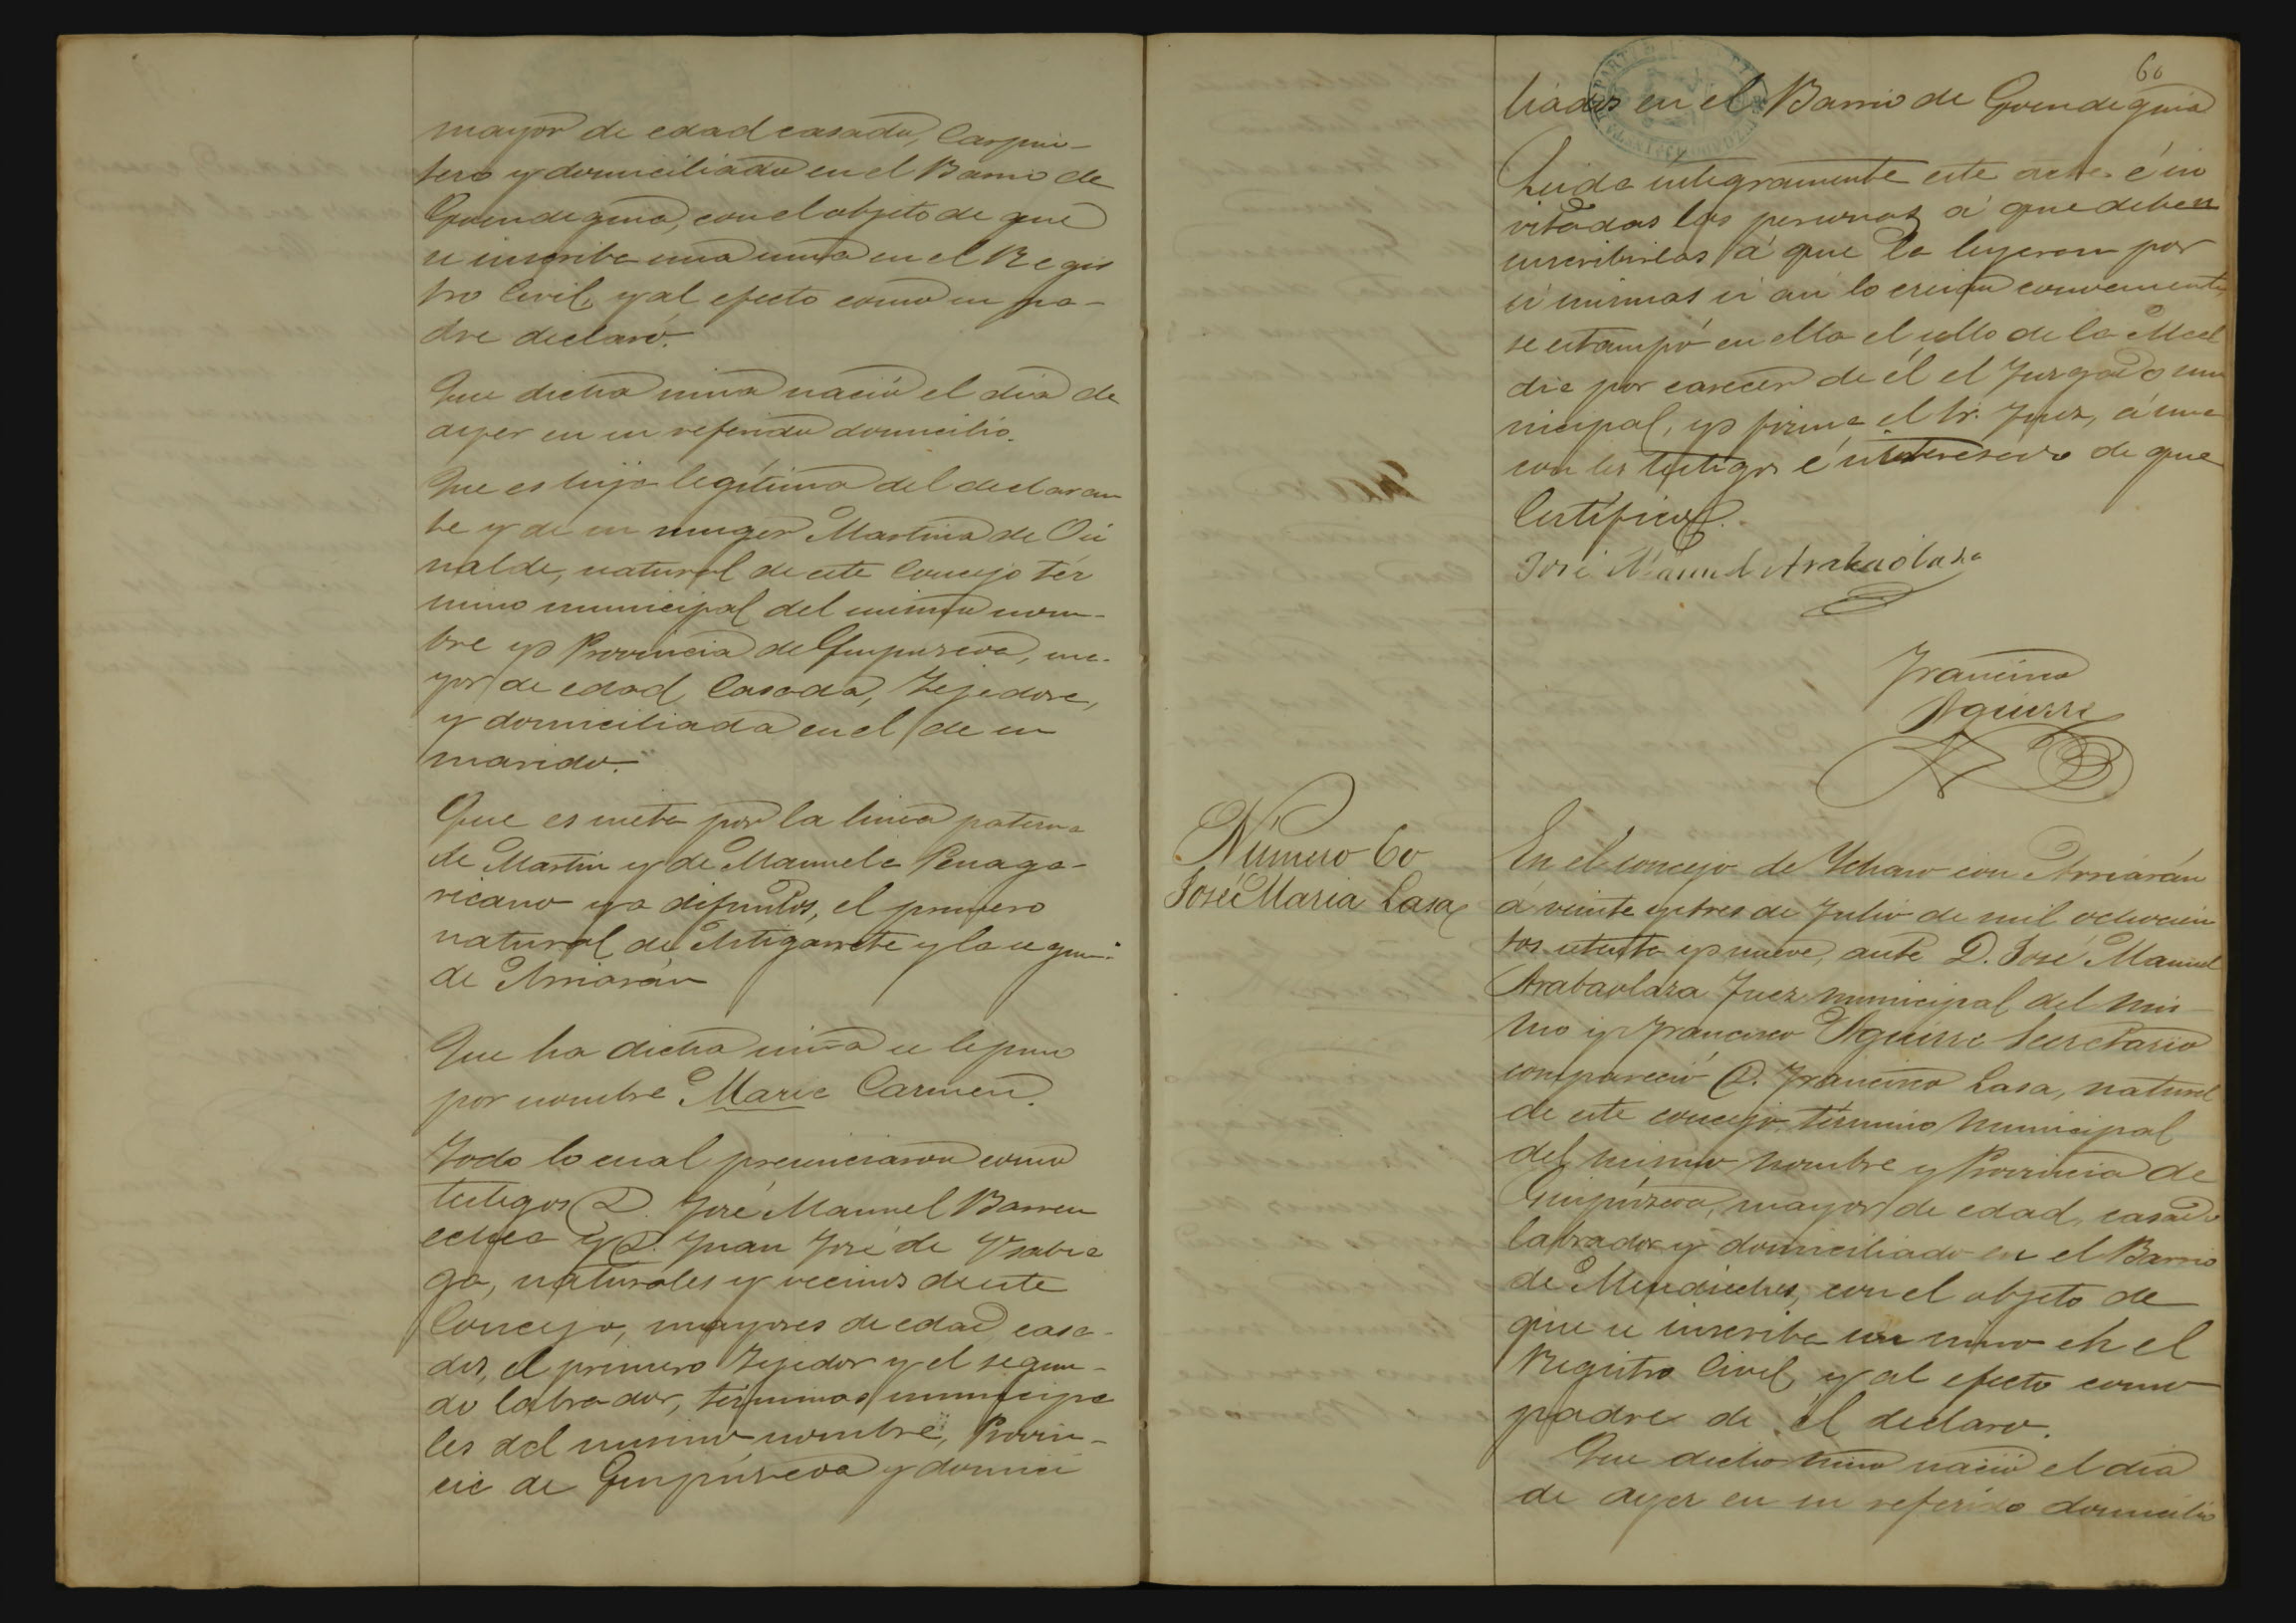 mayor de edad casado, Carpin-
tero y domiciliado en el Barrio de
Goendeguia, con el objeto de que
se inscriba una niña en el Regis
tro Civil, y al efecto como su pa-
dre declaró.
Que dicha niña nació el dia de
ayer en su referido domicilio.
Que es hija legítima del declaran
te y de su muger Martina de Oci
nalde, natural de este Concejo tér
mino municipal del mismo nom-
bre y Provincia de Guipuzcoa, ma-
yor de edad, Casada, Tejedora,
y domiciliada en el de su
marido.
Que es nieta por la linea paterna
de Martin y de Manuela Penaga-
ricano ya difuntos, el primero
natural de Astigarreta y la segun-
da Arriarán
Que ha dicha niña se le puso
por nombre Maria Carmen.
Todo lo cual presenciaron como
testigos D. José Manuel Barren
echea y D. Juan José de Ysabia
ga, naturales y vecinos de este
Concejo, mayores de edad, casa-
dos, el primero Tejedor y el segun-
do labrador, terminos municipa
les del mismo nombre, Provin-
cia de Guipúzcoa y domici
60
liados en el Barrio de Goendeguia
Leida integramente este acta é in
vitadas las personas á que deben
suscribirlas á que la leyeran por
si mismas si asi lo creian conveniente,
se estampó en ella el sello de la Alcal
dia por carecer de él el Juzgado mu
nicipal, y firma el Sr. Juez, á una
con los testigos é interesado de que
Certifico.
José Manuel Arabaolaza
Francisco
Aguirre
Número 60
José Maria Lasa
En el concejo de Ychaso con Arriarán
á veinte y tres de Julio de mil ochocien
tos setenta y nueve, ante D. José Manuel
Arabaolaza Juez municipal del mis-
mo y Francisco Aguirre Secretario
compareció D. Francisco Lasa, natural
de este concejo término municipal
del mismo nombre y Provincia de
Guipúzcoa, mayor de edad, casado
labrador y domiciliado en el Barrio
de con el objeto de
que se inscriba un niño en el
Registro Civil, y al efecto como
padre de él declaro.
Que dicho niño nació el dia
de ayer en su referido domicilio